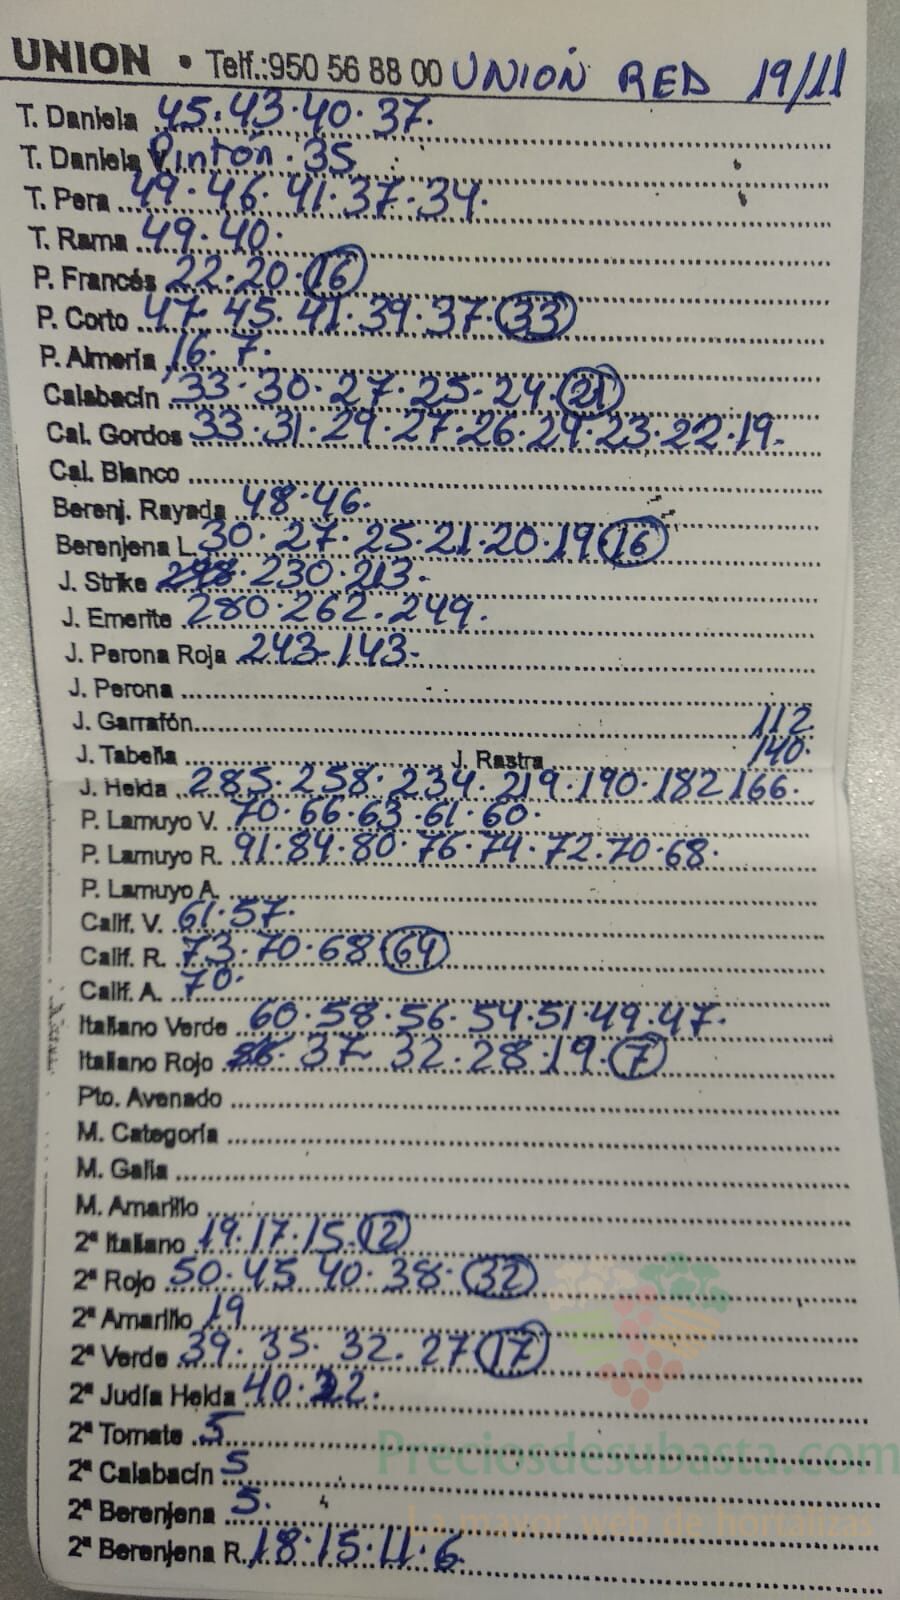 UNION • Telf.:950 56 88 00 UNIÓN RED 19/11
T. Daniela 45.43.40.37.
T. Daniela V. Pintón.35
T. Pera 49.46.41.37.34.
T. Rama 49.40.
P. Francés 22.20.16
P. Corto 47.45.41.39.37.33
P. Almería 16.7.
Calabacín 33.30.27.25.24.21
Cal. Gordos 33.31.29.27.26.24.23.22.19.
Cal. Blanco
Berenj. Rayada 48.46.
Berenjena L. 30.27.25.21.20.19 16
J. Strike 230.213.
J. Emerite 280.262.249.
J. Perona Roja 243-143-
J. Perona
J. Garrafón 112
J. Tabella J. Rastra 140.
J. Helda 285.258.234.219.190.182 166.
P. Lamuyo V. 70.66.63.61.60.
P. Lamuyo R. 91.84.80.76.74.72.70.68.
P. Lamuyo A.
Calif. V. 61.57.
Calif. R. 73.70.68 64
Calif. A. 70.
Italiano Verde 60.58.56.54.51.49.47.
Italiano Rojo 37 32.28.19.7
Pto. Avenado
M. Categoría
M. Galia
M. Amarillo
2ª Italiano 19.17.15.12
2ª Rojo 50.45 40.38.32
2ª Amarillo 19
2ª Verde 39.35.32.27 17
2ª Judía Helda 40.
2ª Tomate 5
2ª Calabacín 5
2ª Berenjena 5.
2ª Berenjena R. 18.15.11.6
Preciosdesubasta.com
La mayor web de hortalizas